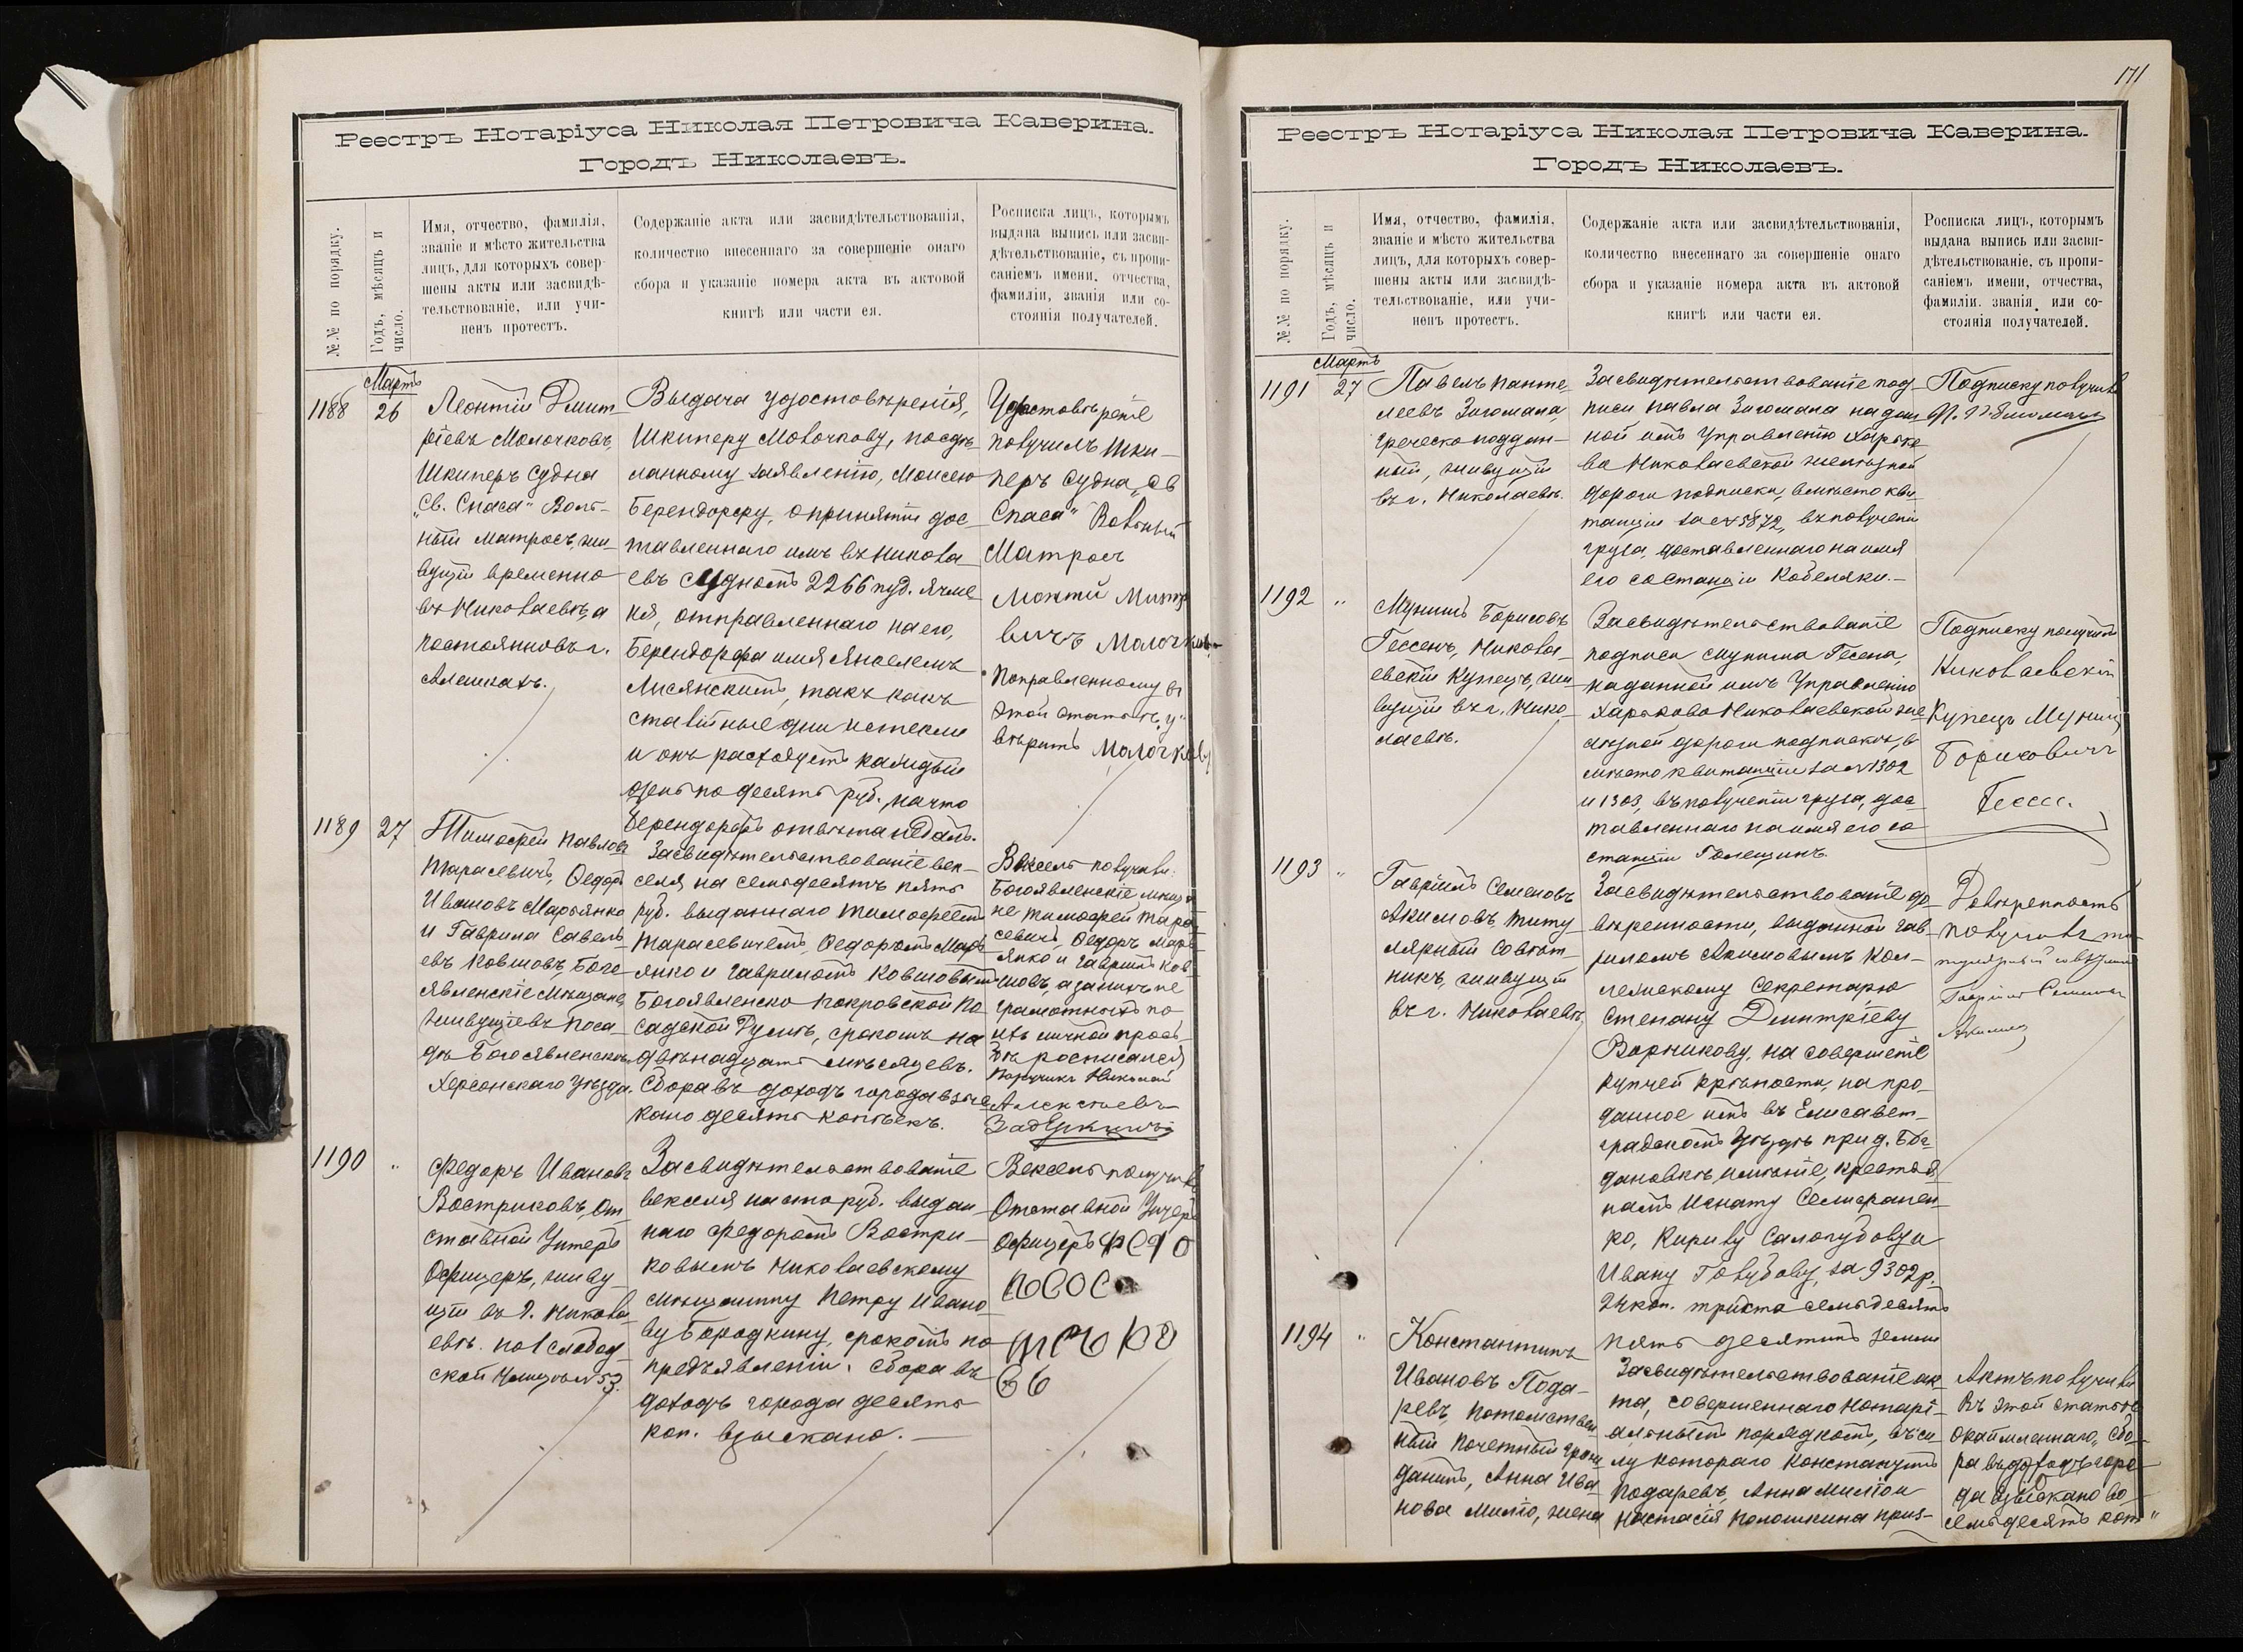 Реестръ Нотаріуса Николая Петровича Каверина.
Городъ Николаевъ.
№№ по порядку.
Годъ, мѣсяцъ и
число.
Имя, отчество, фамилія,
званіе и мѣсто жительства
лицъ, для которыхъ совер-
шены акты или засвидѣ-
тельствованіе, или учи-
ненъ протестъ.
Содержаніе акта или засвидѣтельствованія,
количество внесеннаго за совершеніе онаго
сбора и указаніе номера акта въ актовой
книгѣ или части ея.
Росписка лицъ, которымъ
выдана выпись или засви-
дѣтельствованіе, съ пропи-
саніемъ имени, отчества,
фамиліи, званія или со-
стоянія получателей.
Мартъ
1188
26
Леонтій Дмит
ріевъ Молочковъ,
Шкиперъ судна
„Св. Спаса" Воль-
ный матросъ, жи
вущій временно
въ Николаевѣ, а
постоянно въ г.
Алешкахъ.
Выдача удостовѣренія,
Шкиперу Молочкову, посдѣ
ланному заявленію, Моисею
Берендорфу, о принятіи дос
тавленнаго имъ въ Никола
евъ судномъ 2266 пуд. ячме
ня, отправленнаго на его,
Берендорфа имя Анселемъ
Лисянскимъ, такъ какъ
сталійные дни истекли
и онъ расходуетъ каждый
день по десять руб., на что
Берендорфъ отвѣта не далъ.
Удостовѣреніе
получилъ Шки-
перъ судна „Св
Спаса" Вольный
Матросъ
Леонтій
вичъ Молочковъ
Поправленному въ
этой статьѣ
вѣрить Молочковъ
1189
27
Тимофей Павловъ
Тарасевичъ, Федоръ
Ивановъ Марьянко
и Гаврила Савель
евъ Ковшовъ, Бого
явленскіе мѣщане,
живущіе въ Поса
дѣ Богоявленскомъ
Херсонскаго уѣзда.
Засвидѣтельствованіе век-
селя на семьдесятъ пять
руб. выданнаго Тимофеемъ
Тарасевичемъ, Федоромъ Марь
янко и Гавриломъ Ковшовымъ
Богоявленско Покровской По
садской Думѣ, срокомъ на
двѣнадцать мѣсяцевъ.
Сбора въ доходъ города взыс
кано десять копѣекъ.
Вексель получили:
Богоявленскіе мѣща
не Тимофей Тара
севичъ, Федоръ Марь
янко и Гаврилъ Ков
шовъ, а за нихъ не
грамотныхъ по
ихъ личной прось
бѣ росписался
Поручикъ Николай
Алексѣевъ
1190
"
Федоръ Ивановъ
Востриковъ, От
ставной Унтеръ
Офицеръ, живу-
щій въ г. Никола
евѣ. по 1 слобод
ской улицѣ № 53.
Засвидѣтельствованіе
векселя на сто руб. выдан
наго Федоромъ Востри-
ковымъ Николаевскому
мѣщанину Петру Ивано
ву Бородкину, срокомъ по
предъявленіи. Сбора въ
доходъ города десять
коп. взыскано.
Вексель получилъ
Отставной Унтеръ
Офицеръ Федо
171
Реестръ Нотаріуса Николая Петровича Каверина.
Городъ Николаевъ.
№№ по порядку.
Годъ, мѣсяцъ и
число.
Имя, отчество, фамилія,
званіе и мѣсто жительства
лицъ, для которыхъ совер-
шены акты или засвидѣ-
тельствованіе, или учи-
ненъ протестъ.
Содержаніе акта или засвидѣтельствованія,
количество внесеннаго за совершеніе онаго
сбора и указаніе номера акта въ актовой
книгѣ или части ея.
Росписка лицъ, которымъ
выдана выпись или засви-
дѣтельствованіе, съ пропи-
саніемъ имени, отчества,
фамиліи, званія или со-
стоянія получателей.
Мартъ
1191
27
Павелъ Панте
леевъ Зигомала,
греческо поддан-
ный, живущій
въ г. Николаевѣ.
Засвидѣтельствованіе под-
писи Павла Зигомала на дан
ной имъ Управленію Харько
во Николаевской желѣзной
дороги подписки, вмѣсто кви
танціи за № 5872, въ полученіи
груза, доставленнаго на имя
его со станціи Кобеляки.-
Подписку получилъ
1192
"
Мунишъ Борисовъ
Гессенъ, Никола-
евскій купецъ, жи
вущій въ г. Нико
лаевѣ.
Засвидѣтельствованіе
подписи Муниша Гесена,
на данной имъ Управленію
Харьково Николаевской же
лѣзной дороги подпискѣ, в
мѣсто квитанціи за № 1302
и 1303, въ полученіи груза, дос
тавленнаго на имя его со
станціи Галещинъ.
Подписку получилъ
Николаевскій
Купецъ Мунишъ
Борисовичъ
1193
"
Гавріилъ Семеновъ
Акимовъ, Титу
лярный Совѣт-
никъ, живущій
въ г. Николаевѣ
Засвидѣтельствованіе до
вѣренности, выданной Гав
риломъ Акимовымъ Кол-
лежскому Секретарю
Степану Дмитріеву
Ворникову, на совершеніе
купчей крѣпости, на про
данное имъ въ Елисавет-
градскомъ уѣздѣ при д. Бог
дановкѣ имѣніе, крестья
намъ Игнату Семифанен
ко, Кирилу Салогубову и
Ивану Голубову, за 9302 р.
24 коп. триста семьдесятъ
пять десятинъ земли
Довѣренность
получилъ ти
тулярный совѣтникъ
Гавріилъ Семеновъ
Акимовъ
1194
"
Константинъ
Ивановъ Пода-
ревъ, потомствен
ный почетный граж
данинъ, Анна Ива
нова Милію, жена
Засвидѣтельствованіе ак
та, совершеннаго нотарі-
альнымъ порядкомъ, въ си
лу котораго Константинъ
Подаревъ, Анна Милію и
Настасія Полошкина приз-
Актъ получили
Въ этой статьѣ
окаймленнаго „сбо
ра въ доходъ горо
да взыскано во
семьдесятъ коп"